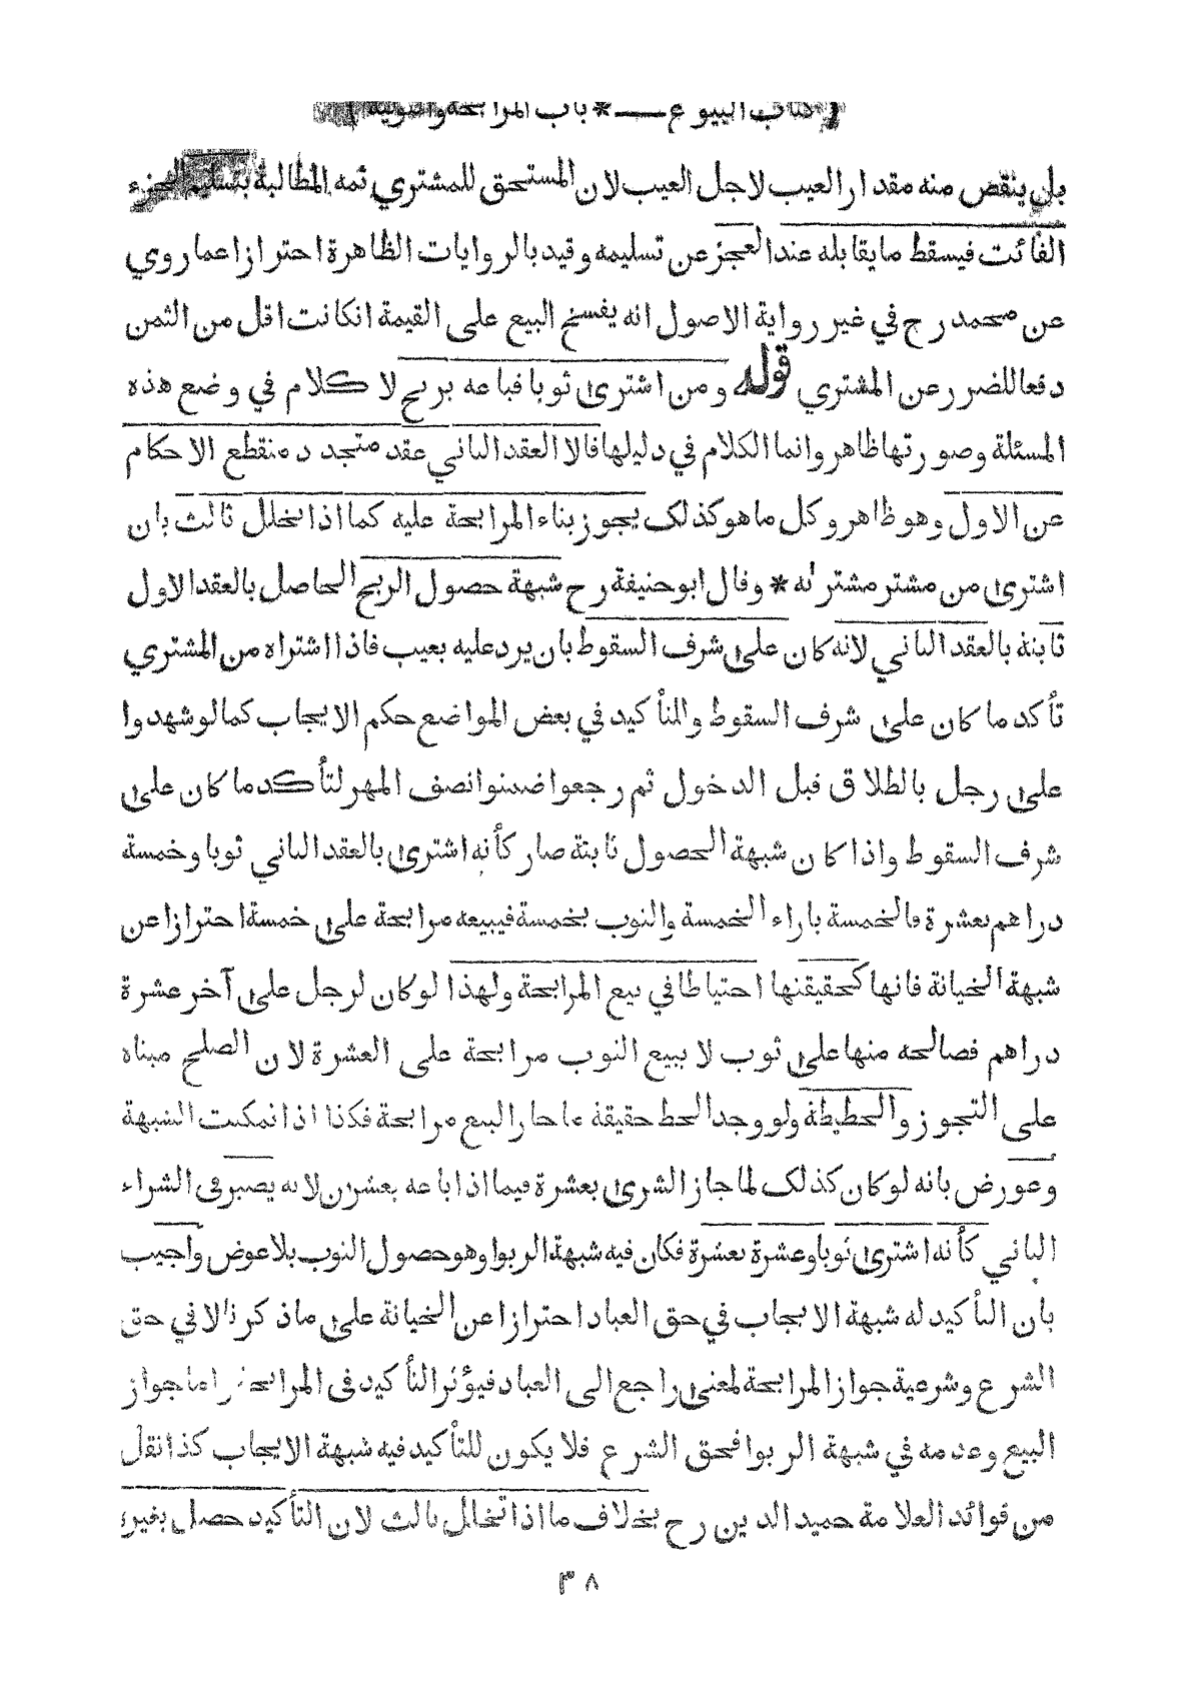 كتاب البيوع — * باب المرابحة والتولية
بل ينقص منه مقدار العيب لاجل العيب لان المستحق للمشتري ثمه المطالبة بتسليم الجزء
الفائت فيسقط مايقابله عند العجز عن تسليمه وقيد بالروايات الظاهرة احترازا عما روي
عن محمد رح في غير رواية الاصول انه يفسخ البيع على القيمة انكانت اقل من الثمن
دفعا للضرر عن المشتري قوله ومن اشترى ثوبا فباعه بربح لا كلام في وضع هذه
المسئلة وصورتها ظاهر وانما الكلام في دليلها قالا العقد الثاني عقد متجدد منقطع الاحكام
عن الاول وهو ظاهر وكل ما هو كذلك يجوز بناء المرابحة عليه كما اذا تخلل ثالث بان
اشترى من مشتر مشتريه * وقال ابو حنيفة رح شبهة حصول الربح الحاصل بالعقد الاول
ثابتة بالعقد الثاني لانه كان على شرف السقوط بان يرد عليه بعيب فاذا اشتراه من المشتري
تأكد ما كان على شرف السقوط والتأكيد في بعض المواضع حكم الايجاب كمالو شهدوا
على رجل بالطلاق قبل الدخول ثم رجعوا ضمنوا نصف المهر لتأكد ما كان على
شرف السقوط واذا كان شبهة الحصول ثابتة صار كأنه اشترى بالعقد الثاني ثوبا وخمسة
دراهم بعشرة فالخمسة بازاء الخمسة والثوب بخمسة فيبيعه مرابحة على خمسة احترازا عن
شبهة الخيانة فانها كحقيقتها احتياطا في بيع المرابحة ولهذا لو كان لرجل على آخر عشرة
دراهم فصالحه منها على ثوب لا يبيع الثوب مرابحة على العشرة لان الصلح مبناه
على التجوز والحطيطة ولو وجد الحط حقيقة ما جاز البيع مرابحة فكذا اذا تمكنت الشبهة
وعورض بانه لو كان كذلك لما جاز الشرى بعشرة فيما اذا باعه بعشرين لانه يصير في الشراء
الثاني كأنه اشترى ثوبا وعشرة بعشرة فكان فيه شبهة الربوا وهو حصول الثوب بلاعوض واجيب
بان التأكيد له شبهة الايجاب في حق العباد احترازا عن الخيانة على ماذكرنا لا في حق
الشرع وشرعية جواز المرابحة لمعنى راجع الى العباد فيؤثر التأكيد في المرابحة اما جواز
البيع وعدمه في شبهة الربوا فحق الشرع فلا يكون للتأكيد فيه شبهة الايجاب كذا نقل
من فوائد العلامة حميد الدين رح بخلاف ما اذا تخلل ثالث لان التأكيد حصل بغيره
٣٨